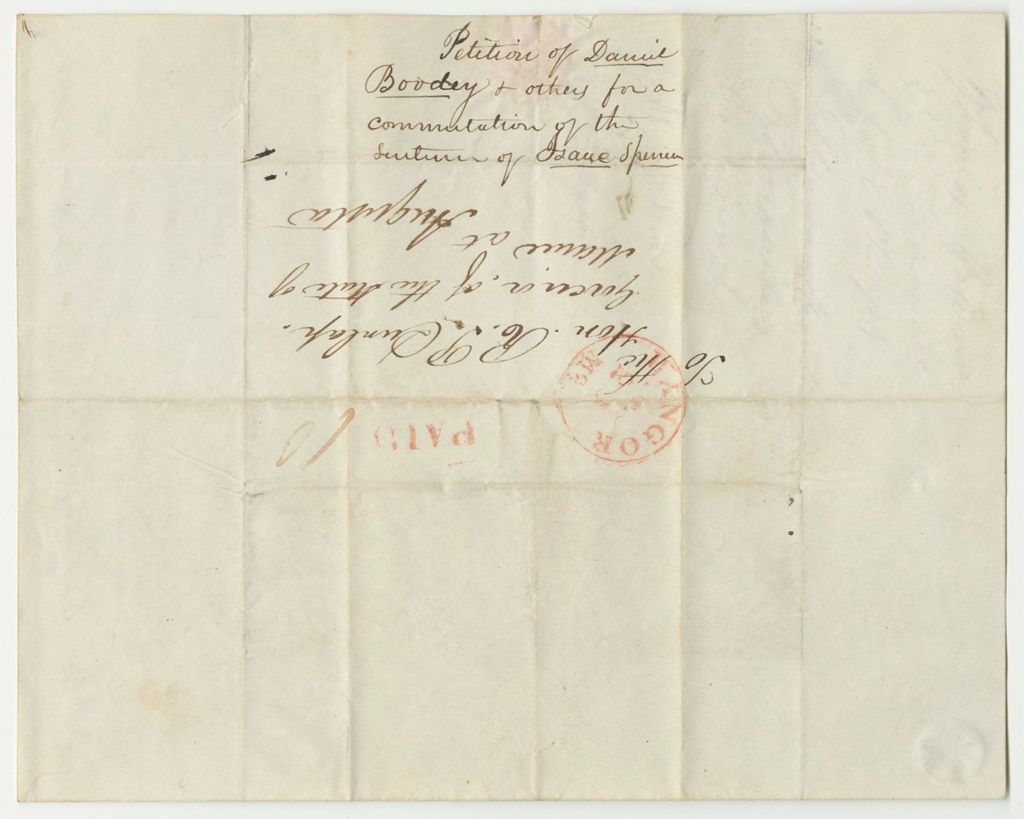 Petition of Daniel
Boodey & others for a
commutation of the
sentence of Isaac Spencer
To the
Hon. R. P. Dunlap.
Governor, of the State of
Maine at
Augusta
BANGOR Me.
PAID
10